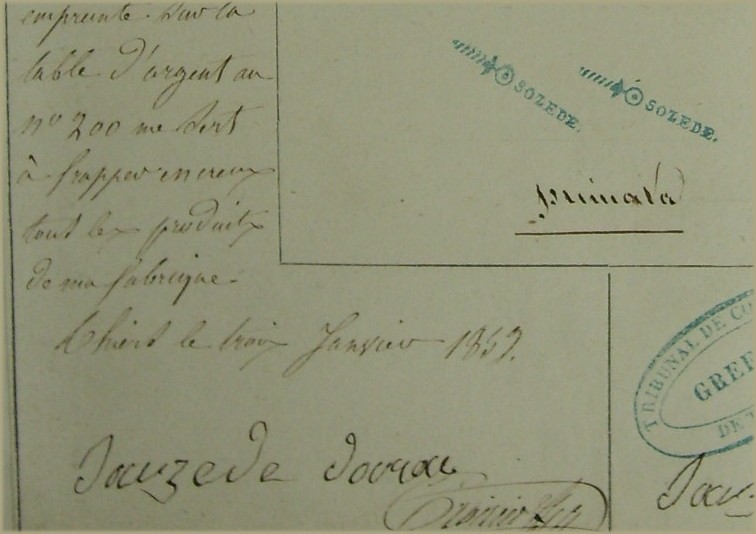 empreinte sur la
table d'argent au
n° 200 me sert
à frapper en creux
tout les produits
de ma fabrique.
Thiers le trois Janvier 1859.
SOZEDE.
SOZEDE.
primata
TRIBUNAL DE CO
GREF
DE